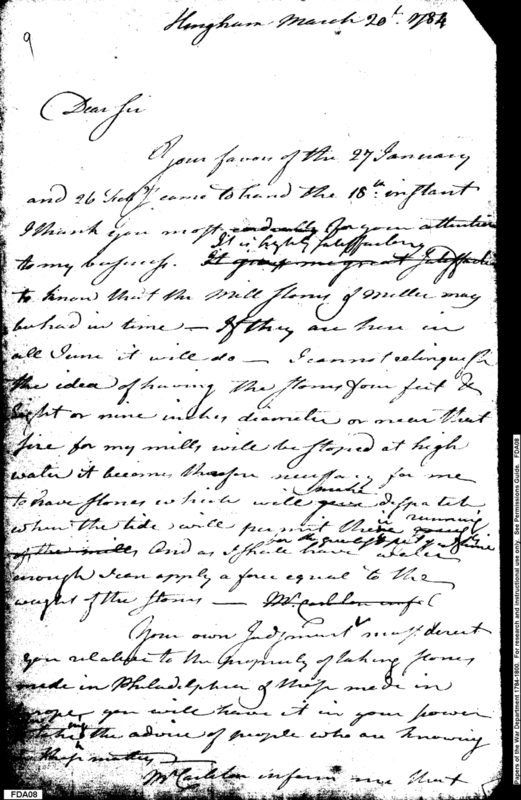 9
Hingham March 20t. 1784
Dear Sir
Your favors of the 27 January
and 26 Feby came to hand the 18th instant
I thank you most cordially for your attention
It is highly satisfactory
to my business. It gives me great satisfaction
to know that the mill stones of Miller may
be had in time — If they are here in
all June it will do — I cannot relinquish
the idea of having the stones four feet &
eight or nine inches diameter or near that
size for my mills will be stoped at high
water it becomes therefore necessary for me
make
to have stones which will give dispatch
when the tide will permit there running
of the mills And as I shall have water
enough I can apply a force equal to the
weight of the stones — Mr Carlton
Your own Judgment must direct
you relative to the propriety of taking stones
made in Philadelphia of those made in
you will have it in your power
the advice of people who are knowing
these matters
Mr Carlton inform me that
FDA08
Papers of the War Department 1784-1800. For research and instructional use only. See Permissions Guide. FDA08